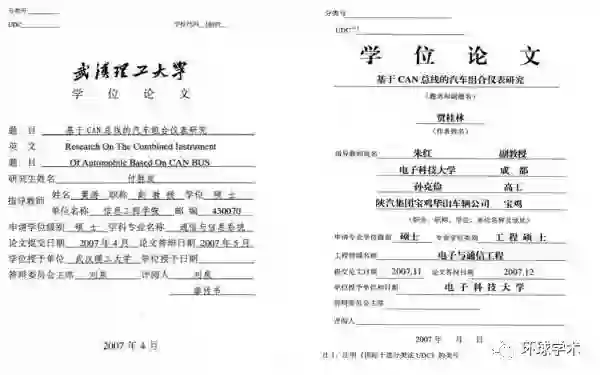 分类号
UDC
学校代码 10497
武汉理工大学
学 位 论 文
题 目 基于CAN总线的汽车组合仪表研究
英 文 Research On The Combined Instrument
题 目 Of Automobile Based On CAN BUS
研究生姓名
指导教师
姓名 职称 副教授 学位 硕士
单位名称 信息工程学院 邮编 430070
申请学位级别 硕士 学科专业名称 通信与信息系统
论文提交日期 2007年4月 论文答辩日期 2007年5月
学位授予单位 武汉理工大学 学位授予日期
答辩委员会主席 刘泉 评阅人 刘泉
2007年4月
分类号
UDC
学 位 论 文
基于 CAN 总线的汽车组合仪表研究
(题名和副题名)
贾桂林
(作者姓名)
指导教师姓名 朱红 副教授
电子科技大学 成 都
孙克俭 高工
陕汽集团宝鸡华山车辆公司 宝鸡
(职务、职称、学位、单位名称及地址)
申请专业学位级别 硕士 专业学位类别 工程硕士
工程领域名称 电子与通信工程
提交论文日期 2007.11 论文答辩日期 2007.12
学位授予单位和日期 电子科技大学
答辩委员会主席
评阅人
2007 年 月 日
注1:注明《国际十进分类法UDC》的类号
环球学术